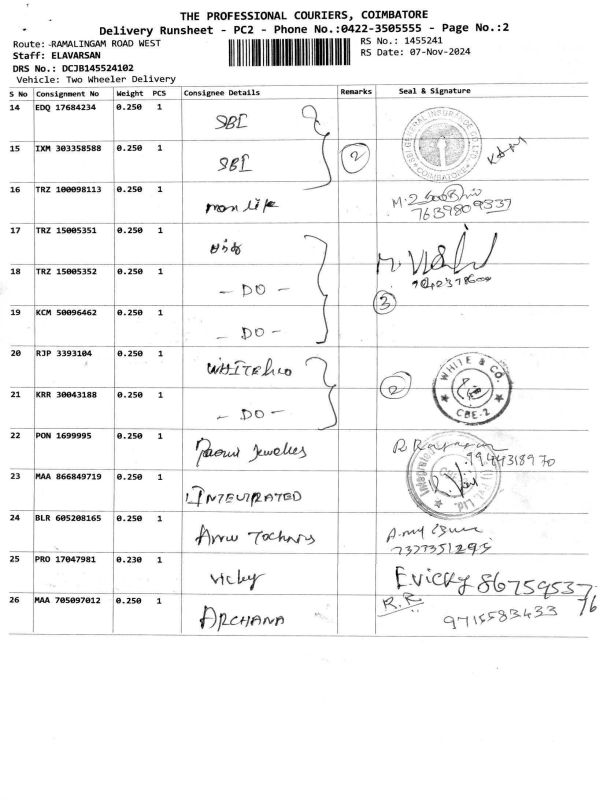 THE PROFESSIONAL COURIERS, COIMBATORE
Delivery Runsheet - PC2 - Phone No.:0422-3505555 - Page No.:2
Route: RAMALINGAM ROAD WEST RS No.: 1455241
Staff: ELAVARSAN RS Date: 07-Nov-2024
DRS No.: DCJB145524102
Vehicle: Two Wheeler Delivery
S No Consignment No Weight PCS Consignee Details Remarks Seal & Signature
14 EDQ 17684234 0.250 1 SBI SBI GENERAL INSURANCE CO. LTD. COIMBATORE
15 IXM 303358588 0.250 1 SBI 2
16 TRZ 100098113 0.250 1
7639809337
17 TRZ 15005351 0.250 1
18 TRZ 15005352 0.250 1 - DO -
3
19 KCM 50096462 0.250 1 - DO -
20 RJP 3393104 0.250 1 WHITE & CO. CBE-2
21 KRR 30043188 0.250 1 - DO - 2
22 PON 1699995 0.250 1 Jewelles 9944318970
23 MAA 866849719 0.250 1 Integrated Ltd.
24 BLR 605208165 0.250 1
7373351295
25 PRO 17047981 0.230 1 Vicky E.vicky 8675953776
26 MAA 705097012 0.250 1 ARCHANA R.R 9715583433